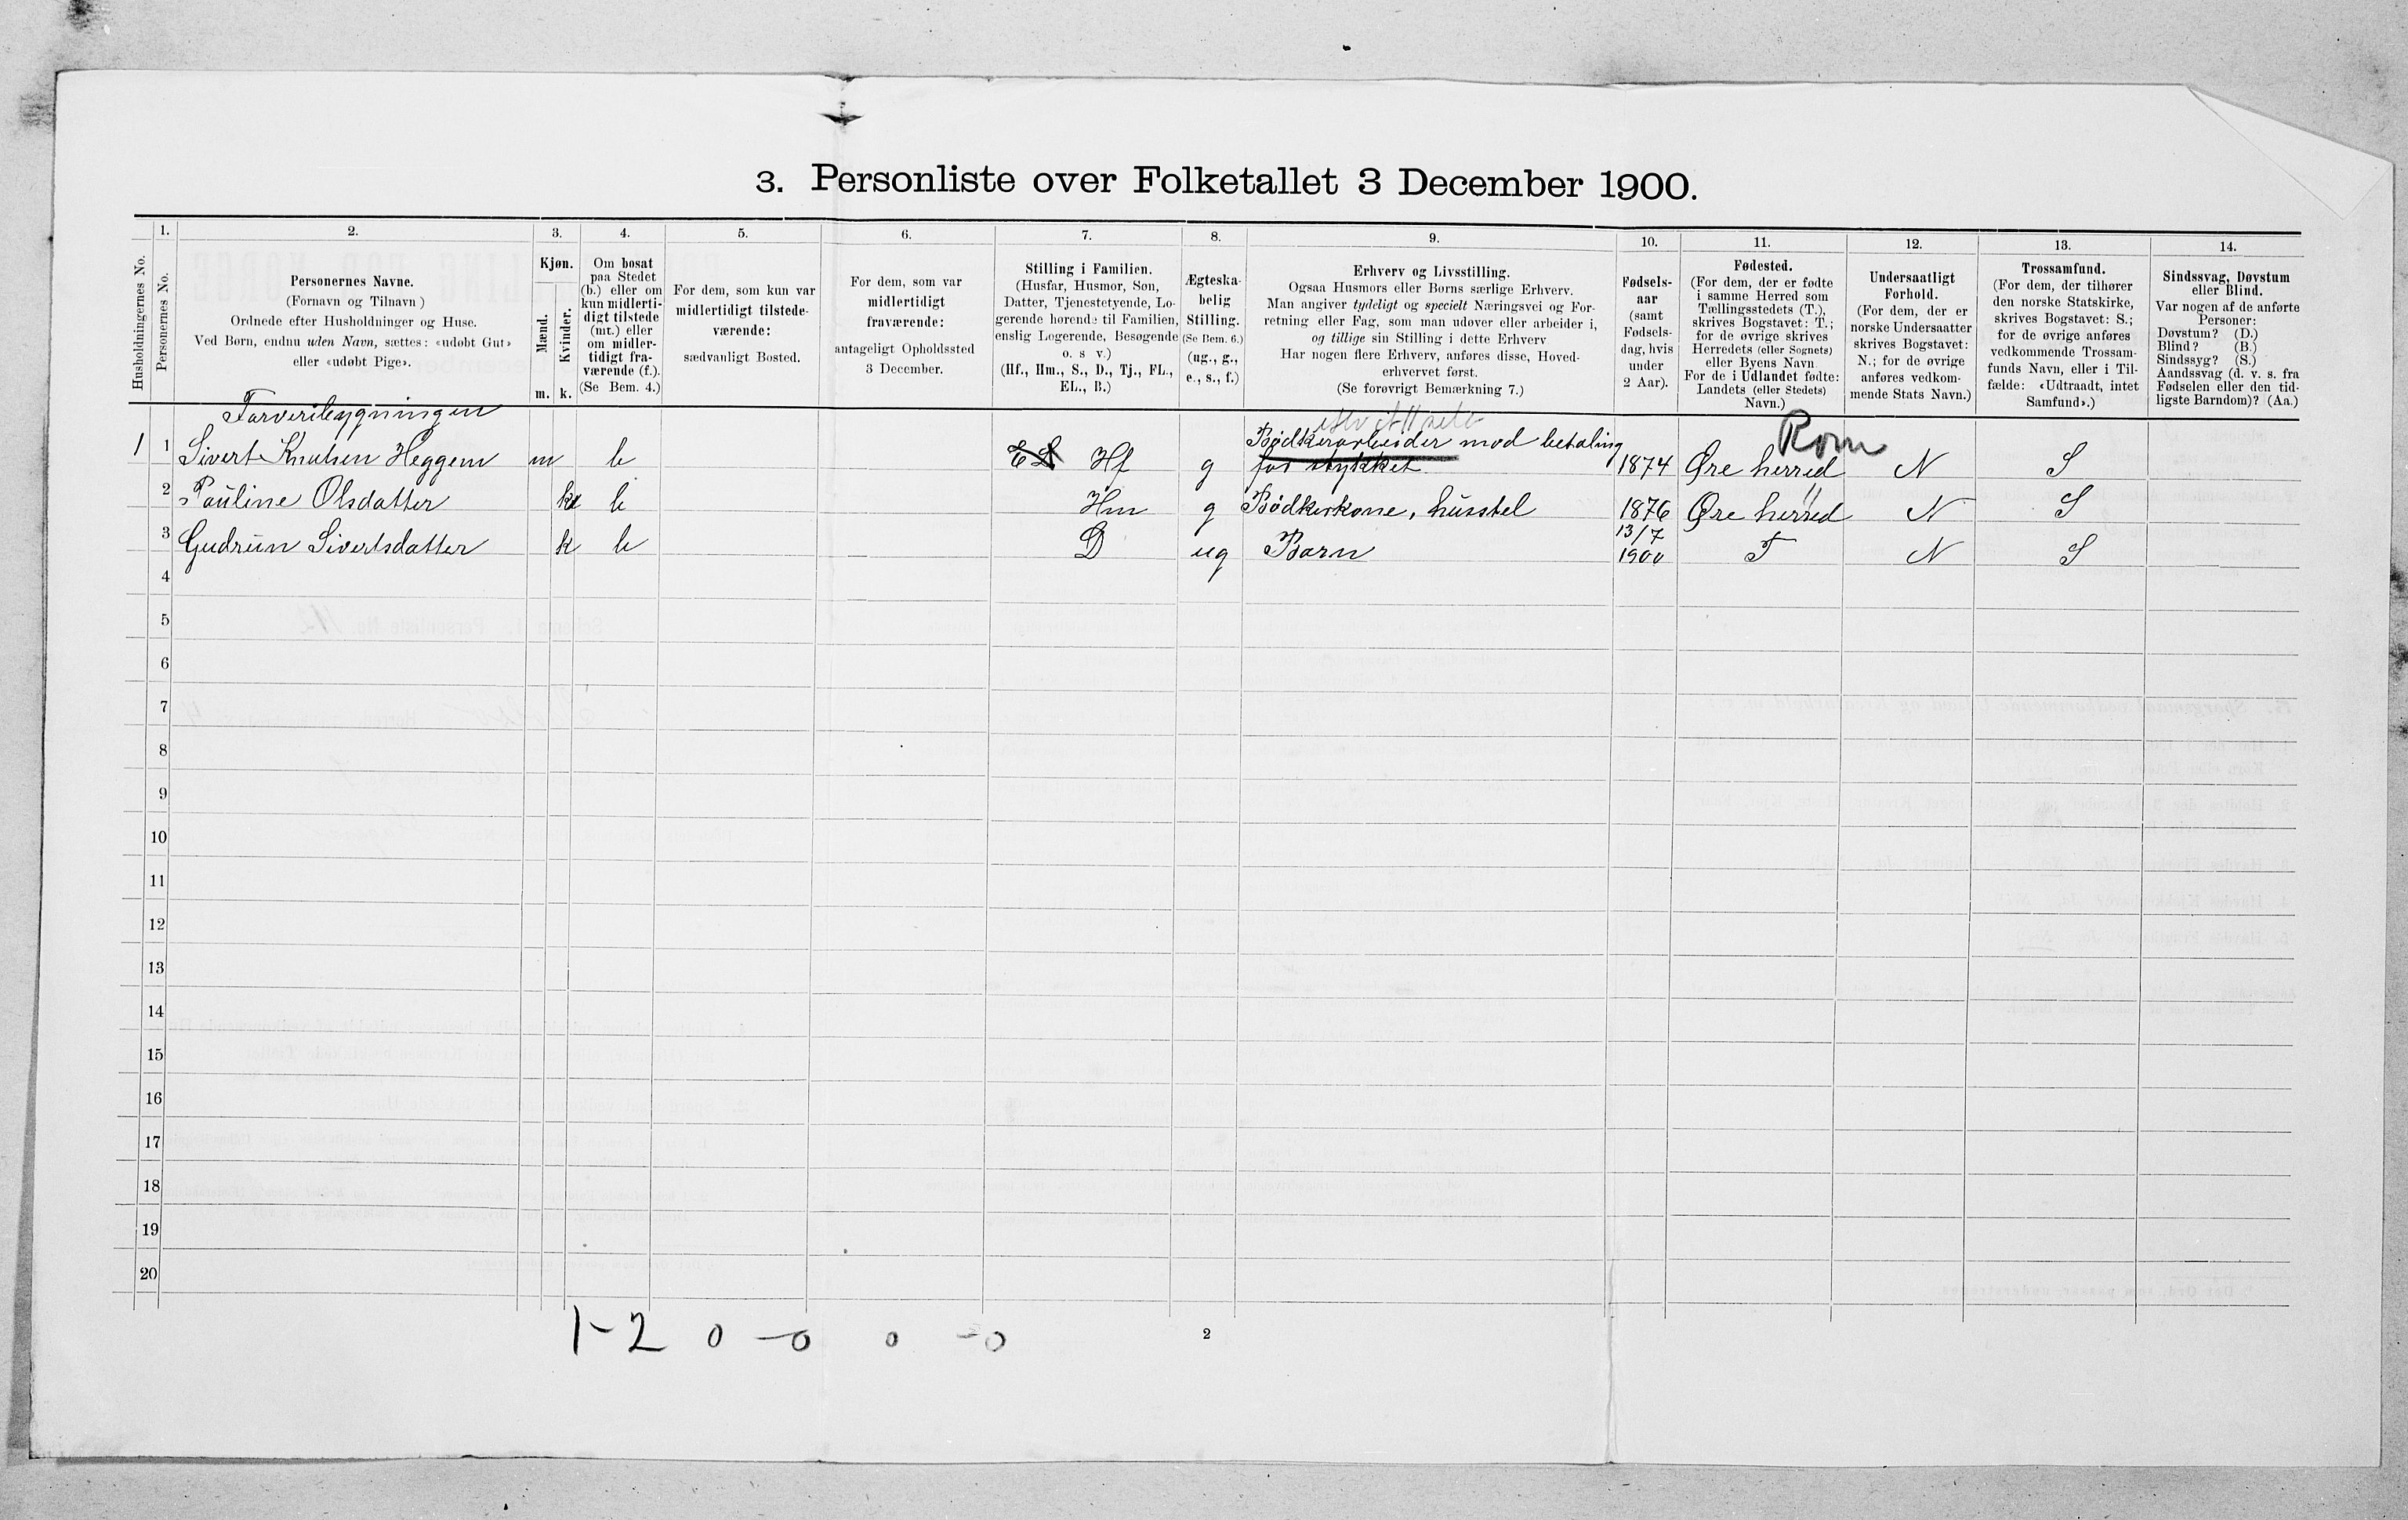 3. Personliste over Folketallet 3 December 1900.
Husholdningernes No.
1.
Personernes No.
2.
Personernes Navne.
(Fornavn og Tilnavn)
Ordnede efter Husholdninger og Huse.
Ved Børn, endnu uden Navn, sættes: «udøbt Gut»
eller «udøbt Pige».
3.
Kjøn.
Mænd.
Kvinder.
m. k.
4.
Om bosat
paa Stedet
(b.) eller om
kun midlerti-
digt tilstede
(mt.) eller
om midler-
tidigt fra-
værende (f.).
(Se Bem. 4.)
5.
For dem, som kun var
midlertidigt tilstede-
værende:
sædvanligt Bosted.
6.
For dem, som var
midlertidigt
fraværende:
antageligt Opholdssted
3 December.
7.
Stilling i Familien.
(Husfar, Husmor, Søn,
Datter, Tjenestetyende, Lo-
gerende hørende til Familien,
enslig Logerende, Besøgende
o. s v.)
(Hf., Hm., S., D., Tj., FL.,
EL., B.)
8.
Ægteska-
belig
Stilling.
(Se Bem. 6.)
(ug., g.,
e., s., f.)
9.
Erhverv og Livsstilling.
Ogsaa Husmors eller Børns særlige Erhverv.
Man angiver tydeligt og specielt Næringsvei og For-
retning eller Fag, som man udøver eller arbeider i,
og tillige sin Stilling i dette Erhverv
Har nogen flere Erhverv, anføres disse, Hoved-
erhvervet først.
(Se forøvrigt Bemærkning 7.)
10.
Fødsels-
aar
(samt
Fødsels-
dag, hvis
under
2 Aar).
11.
Fødested.
(For dem, der er fødte
i samme Herred som
Tællingsstedets (T.),
skrives Bogstavet: T.;
for de øvrige skrives
Herredets (eller Sognets)
eller Byens Navn
For de i Udlandet fødte:
Landets (eller Stedets)
Navn.)
12.
Undersaatligt
Forhold.
(For dem, der er
norske Undersaatter
skrives Bogstavet:
N.; for de øvrige
anføres vedkom-
mende Stats Navn.)
13.
Trossamfund.
(For dem, der tilhører
den norske Statskirke,
skrives Bogstavet: S.;
for de øvrige anføres
vedkommende Trossam-
funds Navn, eller i Til-
fælde: «Udtraadt, intet
Samfund».)
14.
Sindssvag, Døvstum
eller Blind.
Var nogen af de anførte
Personer:
Døvstum? (D.)
Blind? (B.)
Sindssyg? (S.)
Aandssvag (d. v. s. fra
Fødselen eller den tid-
ligste Barndom)? (Aa.)
Farveribygningen
Rom
Bødkerarbeider mod betaling
1 1 Sivert Knutsen Heggem m b EL Hf g for stykket 1874 Øre herred N S
2 Pauline Olsdatter k b Hm g Bødkerkone, husstel 1876 Øre herred N S
13/7
3 Gudrun Sivertsdatter k b D ug Barn 1900 T N S
4
5
6
7
8
9
10
11
12
13
14
15
16
17
18
19
20
1-2 0 - 0 0 - 0
2